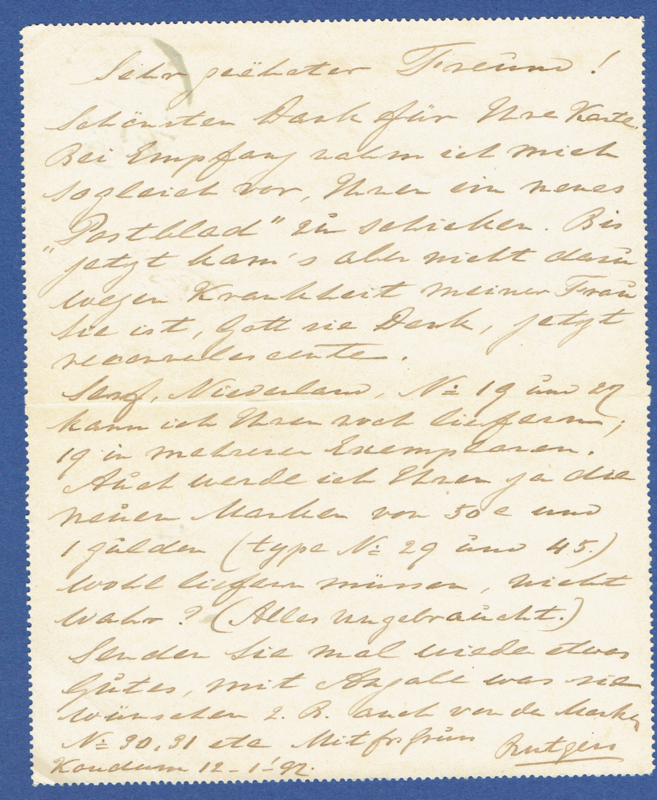 Sehr geëhrter Freund!
Schönsten Dank für Ihre Karte.
Bei Empfang nahm ich mich
sogleich vor, Ihnen ein neues
„Postblad" zu schicken. Bis
jetzt kam's aber nicht dazu
wegen Krankheit meiner Frau
Sie ist, Gott sie Dank, jetzt
reconvalescente.
Senf, Niederland, No 19 und 27
kann ich Ihnen noch liefern;
19 in mehreren Exemplaren.
Auch werde ich Ihnen ja die
neuen Marken von 50 c und
1 gulden (type No 29 und 45.)
wohl liefern müssen, nicht
wahr? (Alles ungebraucht.)
Senden Sie mal wieder etwas
Gutes, mit Angabe was sie
wünschen z. B. auch von den Marken
No 30, 31 etc Mit fr grüss
Rutgers
Koudum 12-1-'92.